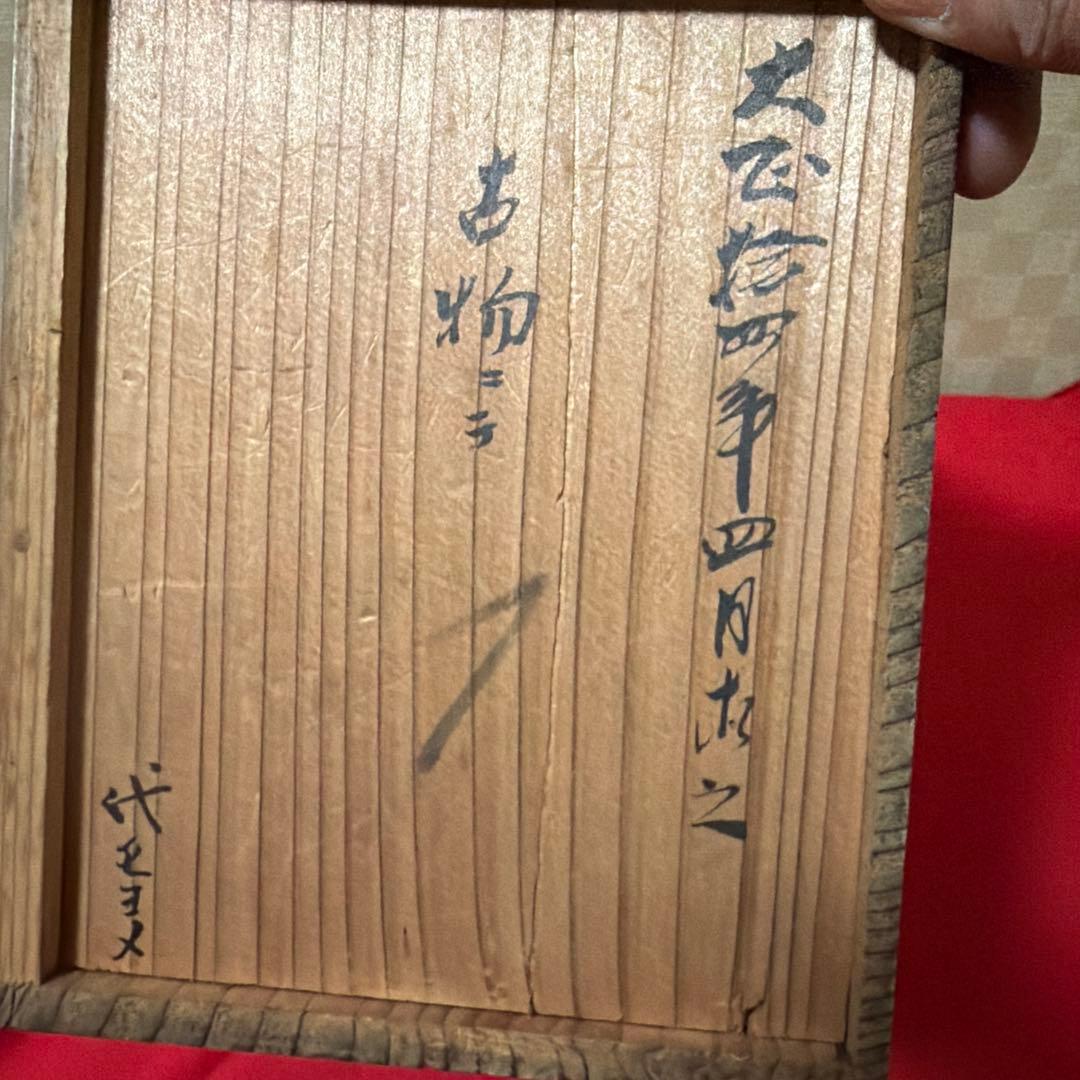 大正拾四年四月求之
古物ニテ
代モヨメ